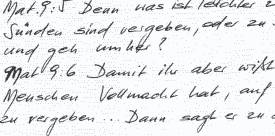 Mat. 9:5 Denn was ist leichter z
Sünden sind vergeben, oder zu
und geh umher?
Mat 9:6 Damit ihr aber wißt
Menschen Vollmacht hat, auf
zu vergeben... Dann sagt er zu